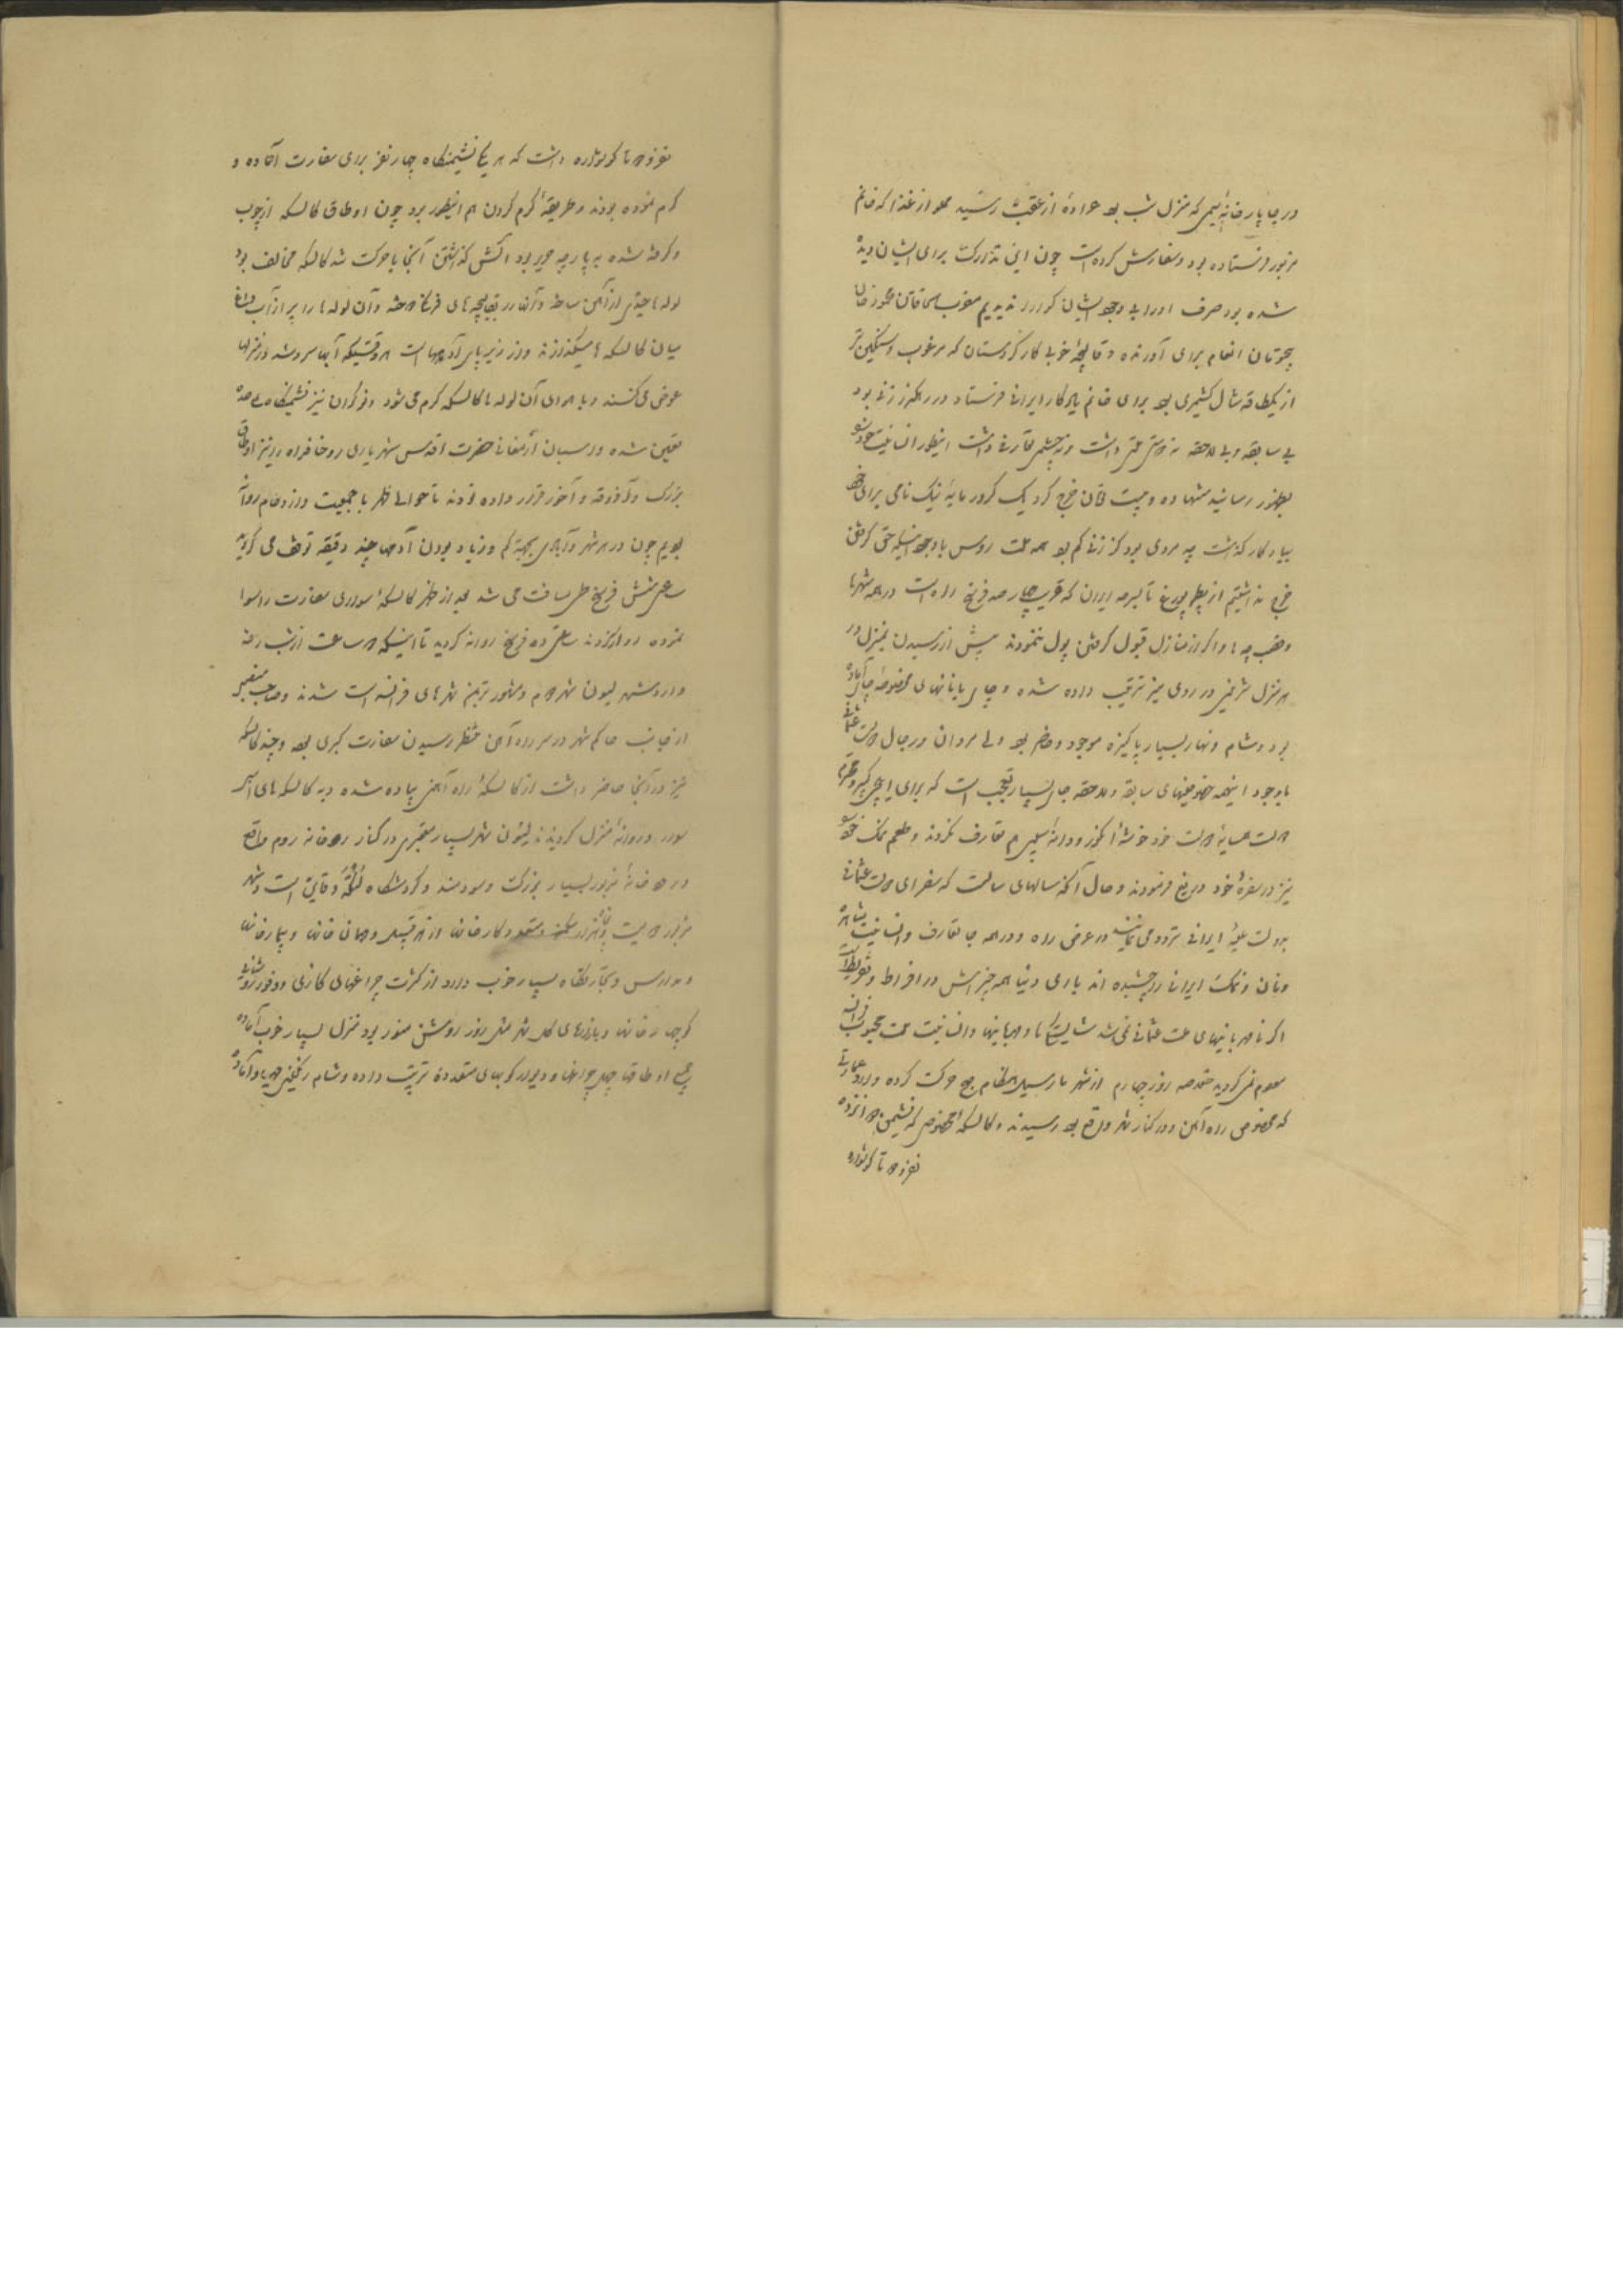 در چاپارخانه سیمی که منزل شب بود عرادهٔ از عقب رسید مملو از غذا که خانم
مزبور فرستاده بود و سفارش کرده است چون این تدارک برای ایشان دیده
شده بود صرف او را بی وجود ایشان گوارا ندیدیم مقرب الخاقان محمود خان
پنج تومان انعام برای آورنده و قالیچهٔ خوبی کار کردستان که مرغوب و سنگین تر
از یک طاقه شال کشمیری بود برای خانم یادگار ایرانی فرستاد
بی سابقه و بی لاحقه نه داشت و نه چشم داشت اینطور انسانیت
بظهور رسانید تومان خرج کرد یک کرور مایهٔ نیک نامی برای خود
بیادگار گذاشت چه مردی بود کز زنی کم بود همه ملت روس با وجود اینکه حق گرفتن
خرج نداشتیم از پطرپورغ تا سرحد ایران که قریب چهارصد فرسخ راه است در همه شهرها
و قصبچه ها و اکثر از منازل قبول گرفتن پول ننمودند پیش از رسیدن بمنزل در
هر منزل شیرینی در روی میز ترتیب داده شده و چای با نانهای مخصوصه چای آماده
بود و شام و نهار بسیار پاکیزه موجود و حاضر بود ولی مردان و رجال دولت عثمانی
با وجود اینهمه خصوصیتهای سابقه و لاحقه جای بسیار تعجب است که برای ایلچی کبیر
دولت همسایهٔ دولت خود خوشهٔ انگور و دانهٔ سیبی هم تعارف نکردند و طعم نمک خود
نیز در سفرهٔ خود دریغ فرمودند و حال آنکه سالهای سالست که سفرای دولت عثمانی
بدولت علیهٔ ایرانی تردد می نمایند در عرض راه و در همه جا تعارف و انسانیت
و نان و نمک ایران را چشیده اند باری دنیا همه چیزش در افراط و تفریط است
اگر نامهربانیهای ملت عثمانی نمی شد و مهربانیها و انسانیت ملت محبوب فرانسه
معلوم نمی گردید مقدمه روز چهارم از شهر مارسیل هنگام صبح حرکت کرده وارد عمارتی
که مخصوص راه آهن و در کنار شهر واقع بود رسیدند و کالسکهٔ مخصوص که نشیمن
نفری دو تا گوشواره
نفری دو تا گوشواره داشت که هر یکی نشیمنگاه چهار نفر برای سفارت آماده و
گرم نموده بودند و طریقهٔ گرم کردن هم اینطور بود چون اوطاق کالسکه از چوب
و گرفته شده به پارچه حریر بود آتش گذاشتن آنجا با حرکت شد کالسکه مخالف بود
لوله ها از آهن ساخته و آنها را به قالیچه های فرنگی دوخته و آن لوله ها را پر از آب داغ
میان کالسکه ها میگذارند و در زیر پای آدمهاست هر وقتیکه آبها سرد شد در منزلها
عوض می کنند و با هوای آن لوله ها کالسکه گرم می شود و نوکران نیز نشیمنگاه علیحده
تعیین شده و اسبان ارمغانی حضرت اقدس شهریاری روحنا فداه را نیز اوطاق
بزرگ و آذوقه و آخور قرار داده بودند تا حوالی ظهر با جمعیت و ازدحام روانه
بودیم چون در هر شهر و آبادی بجهة کم و زیاد بودن آدمها چند دقیقه توقف می کردند
ساعتی شش فرسخ طی مسافت می شد بعد از ظهر کالسکهٔ سواری سفارت را سوا
نموده روانه کردند ساعتی ده فرسخ روانه گردید تا اینکه دو ساعت از شب رفته
وارد شهر لیون شهر دوم و مشهورترین شهرهای فرانسه است شدند و صاحب منصبی
از جانب حاکم شهر در سر راه آهن منتظر رسیدن سفارت کبری بود و چند کالسکه
نیز در آنجا حاضر داشت از کالسکهٔ راه آهن پیاده شده و به کالسکه های اسبی
سوار و روانهٔ منزل گردیدند لیون شهر بسیار معتبری در کنار رودخانه روم واقع
رودخانهٔ مزبور بسیار بزرگ و سودمند و گردشگاه و قایق است و شهر
مزبور و کارخانها از هر قبیل و مهمان خانها و بیمارخانها
و مدارس و تجارتگاه بسیار خوب دارد از کثرت چراغهای گازی و وفور روشنائی
کوچها و خانها و بازارهای کل شهر مثل روز روشن منور بود منزل بسیار خوب آماده
جمیع اوطاقها چهل چراغها و دیوارکوبهای متعدده ترتیب داده و شام رنگین مهیا و آماده